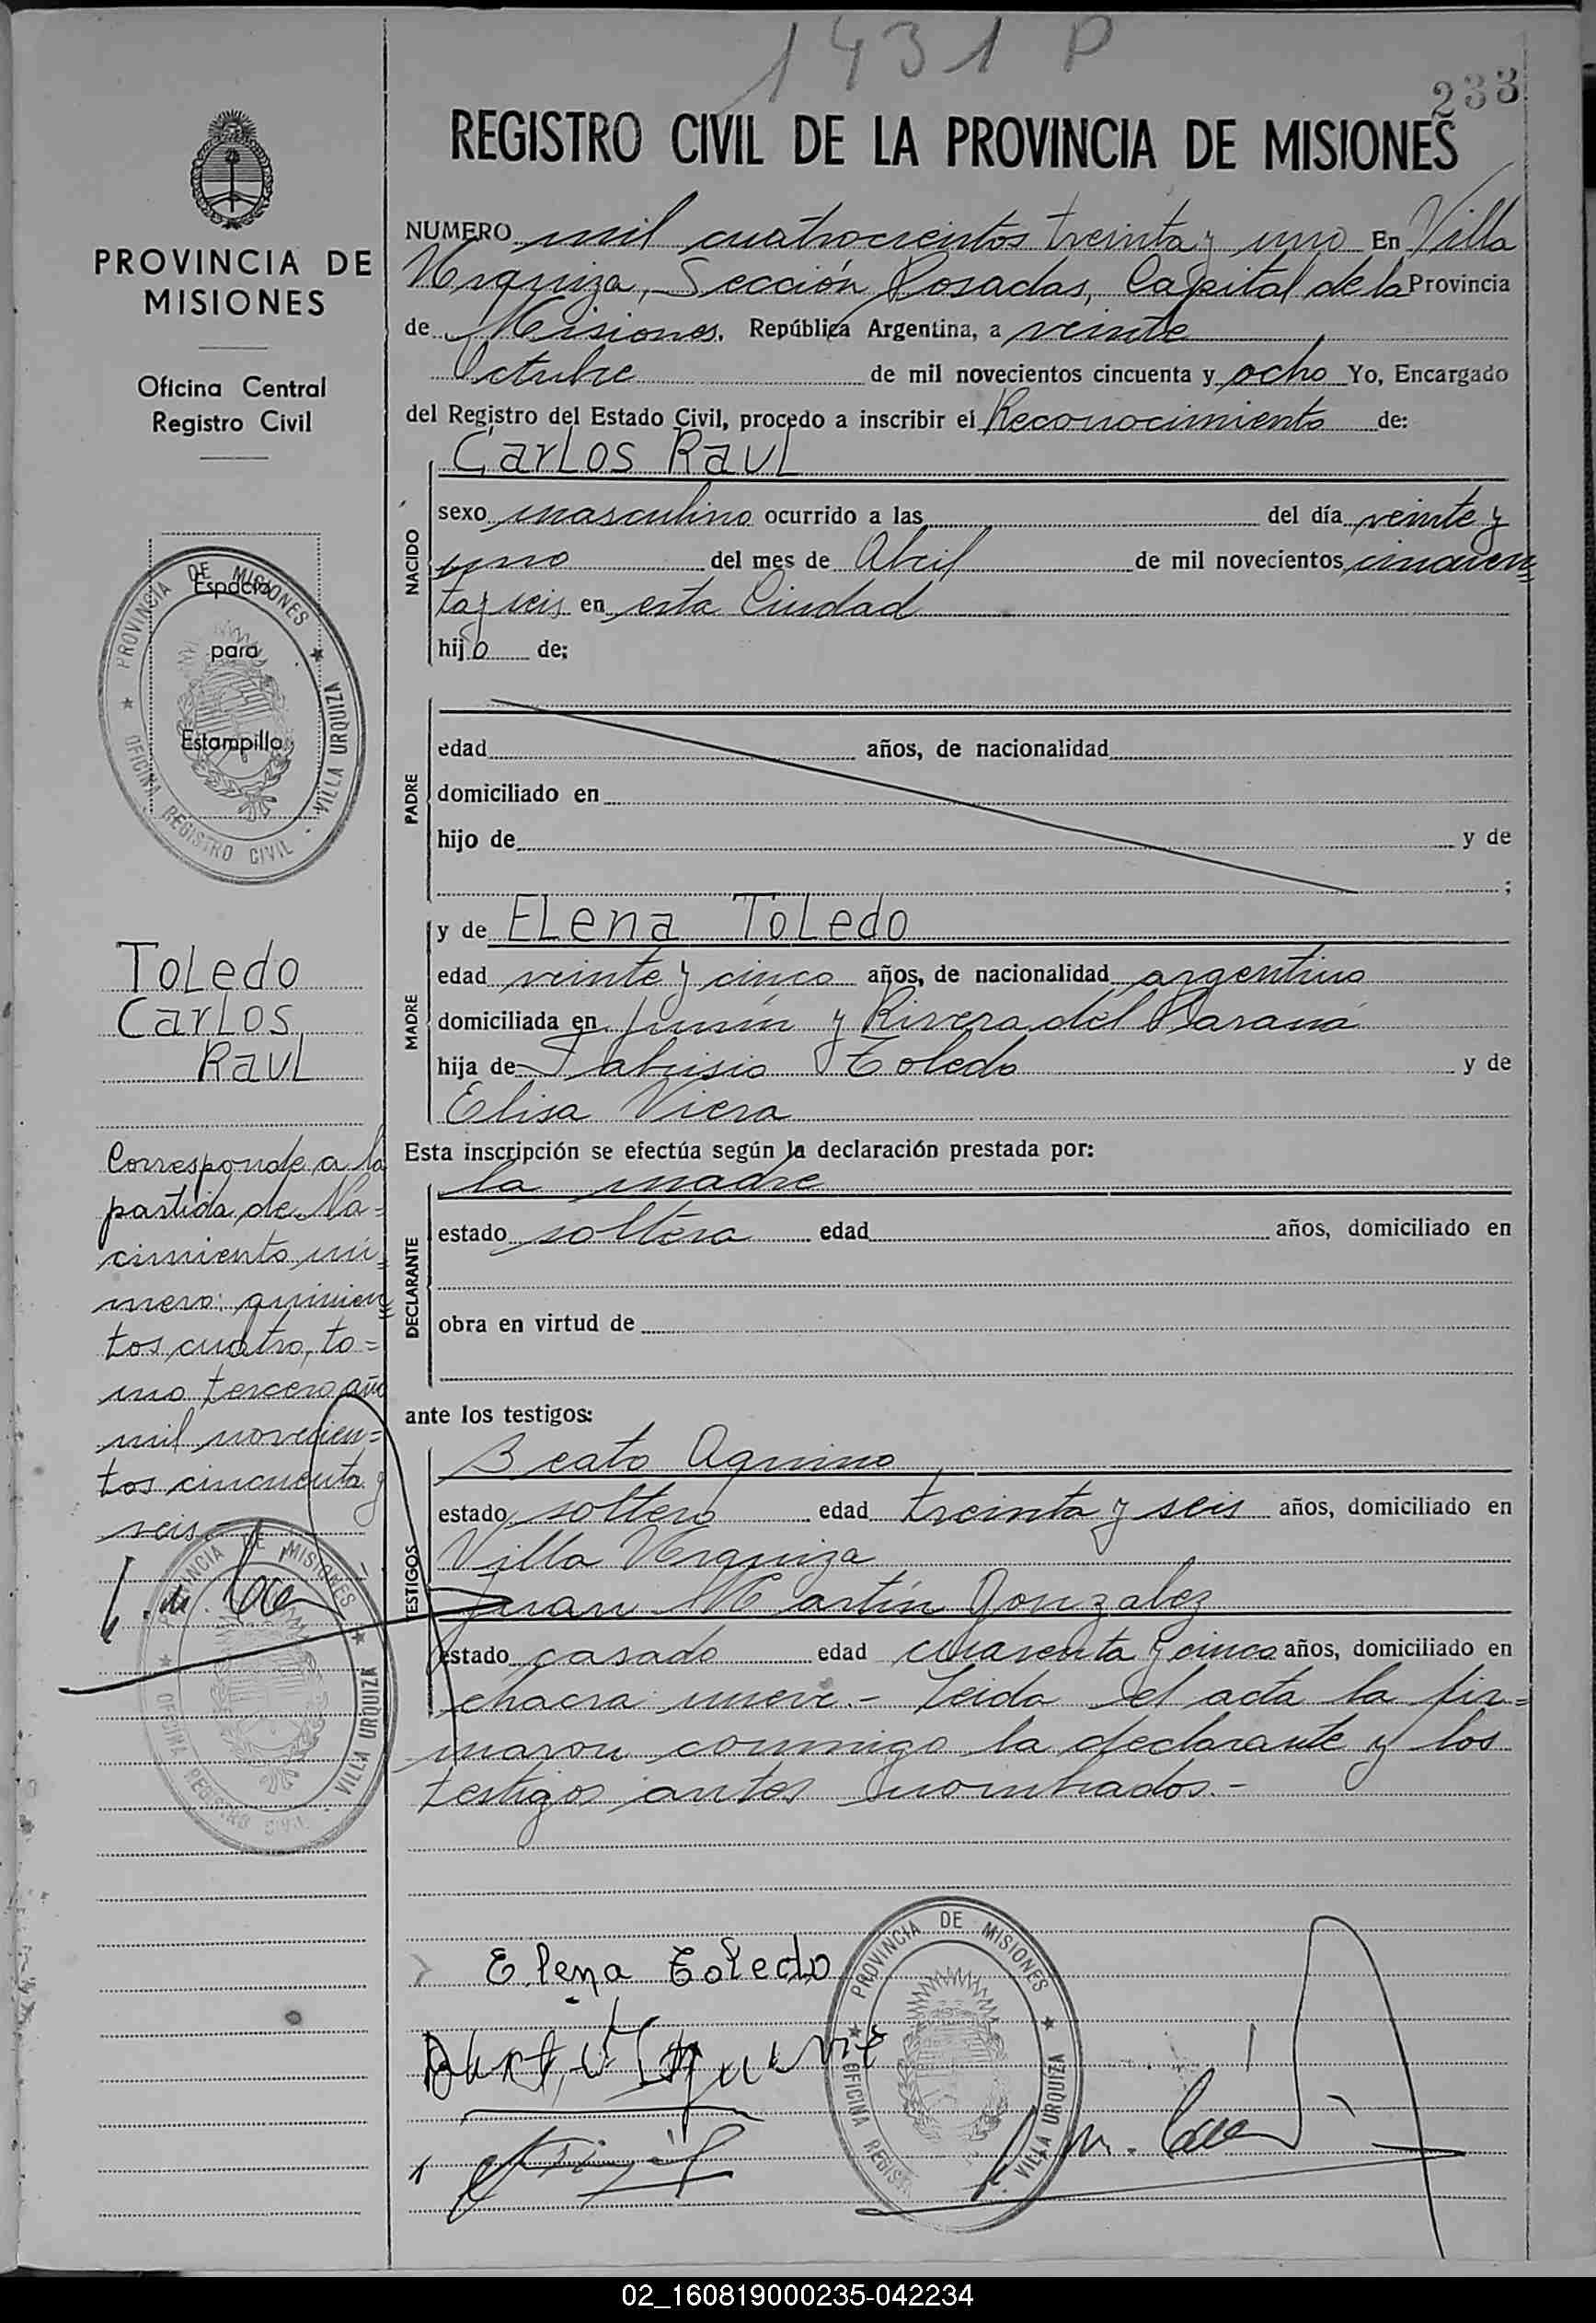 1431 P
233
REGISTRO CIVIL DE LA PROVINCIA DE MISIONES
PROVINCIA DE
MISIONES
Oficina Central
Registro Civil
Espacio
para
Estampilla
PROVINCIA DE MISIONES
OFICINA REGISTRO CIVIL - VILLA URQUIZA
Toledo
Carlos
Raul
Corresponde a la
partida de Na=
cimiento nú=
mero: quinien=
tos cuatro, to=
mo tercero año
mil novecien=
tos cincuenta y
seis.-
PROVINCIA DE MISIONES
OFICINA REGISTRO CIVIL - VILLA URQUIZA
NUMERO mil cuatrocientos treinta y uno En Villa
Urquiza, Sección Posadas, Capital de la Provincia
de Misiones. República Argentina, a veinte
Octubre de mil novecientos cincuenta y ocho Yo, Encargado
del Registro del Estado Civil, procedo a inscribir el Reconocimiento de:
Carlos Raul
NACIDO
sexo masculino ocurrido a las del día veinte y
uno del mes de Abril de mil novecientos cincuen=
ta y seis en esta Ciudad
hijo de;
PADRE
edad años, de nacionalidad
domiciliado en
hijo de y de
;
MADRE
y de Elena Toledo
edad veinte y cinco años, de nacionalidad argentina
domiciliada en Junín y Rivera del Paraná
hija de Fabrisio Toledo y de
Elisa Viera
Esta inscripción se efectúa según la declaración prestada por:
DECLARANTE
la madre
estado soltera edad años, domiciliado en
obra en virtud de
ante los testigos:
TESTIGOS
Beato Aquino
estado soltero edad treinta y seis años, domiciliado en
Villa Urquiza
Juan Martín Gonzalez
estado casado edad cuarenta y cinco años, domiciliado en
chacra nueve.- Leida el acta la fir=
maron conmigo la declarante y los
testigos antes nombrados.-
Elena Toledo
PROVINCIA DE MISIONES
OFICINA REGISTRO VILLA URQUIZA
02_160819000235-042234